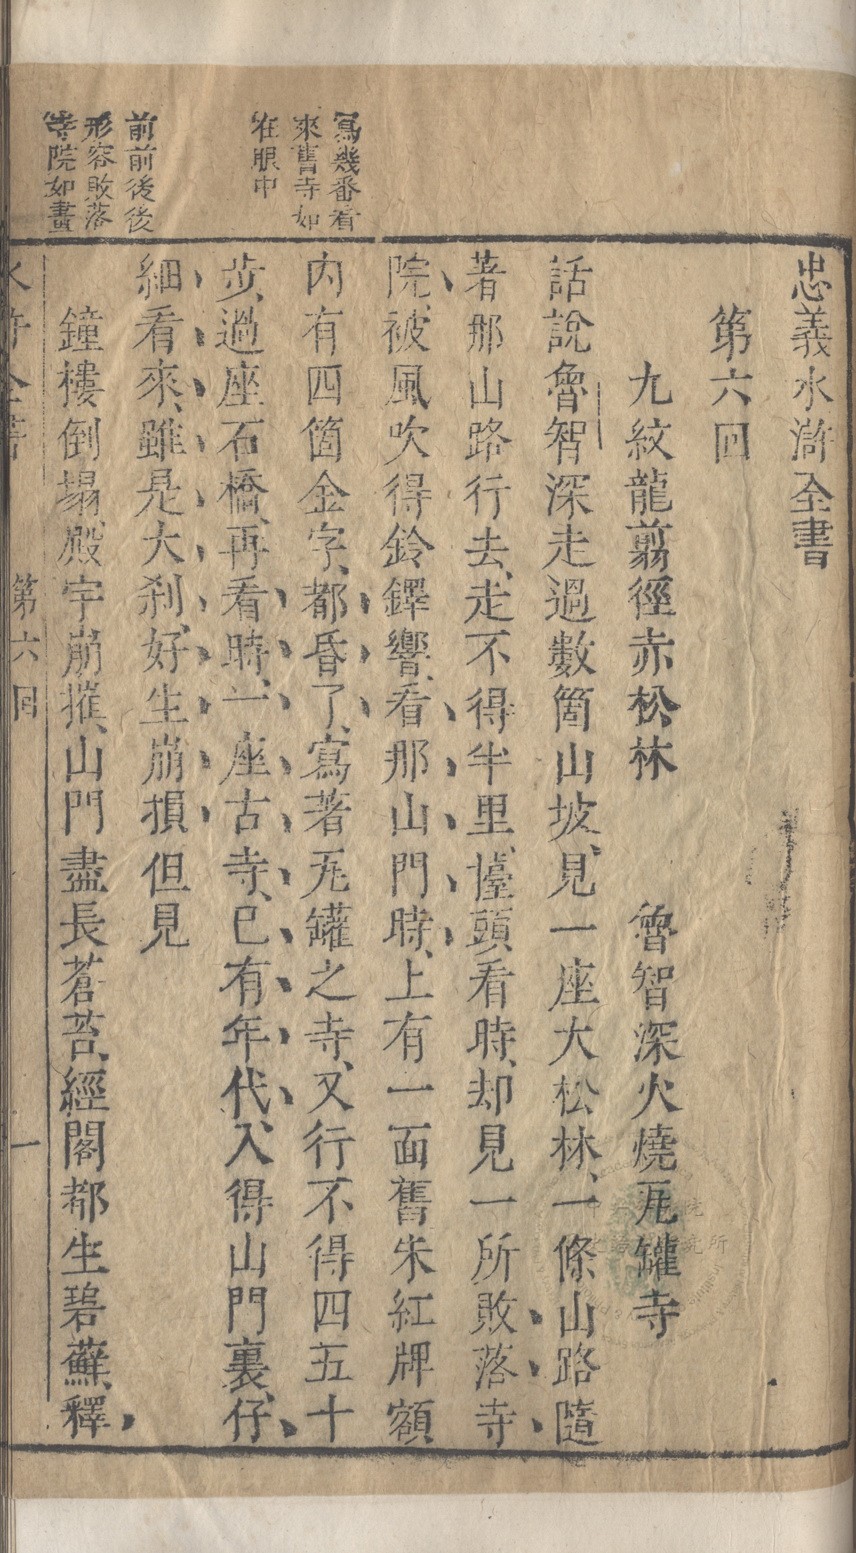 忠義水滸全書
第六回
九紋龍翦徑赤松林　魯智深火燒瓦罐寺
話說魯智深走過數箇山坡、見一座大松林、一條山路隨
著那山路行去、走不得半里、擡頭看時、却見一所敗落寺
院、被風吹得鈴鐸響、看那山門時、上有一面舊朱紅牌額
內有四箇金字、都昏了、寫著瓦罐之寺、又行不得四五十
步、過座石橋、再看時、一座古寺、已有年代、入得山門裏、仔
細看來、雖是大刹、好生崩損但見
鐘樓倒塌、殿宇崩摧、山門盡長蒼苔、經閣都生碧蘚、釋
寫幾番看
來舊寺如
在眼中
前前後後
形容敗落
寺院如畫
水滸全書
第六回
一